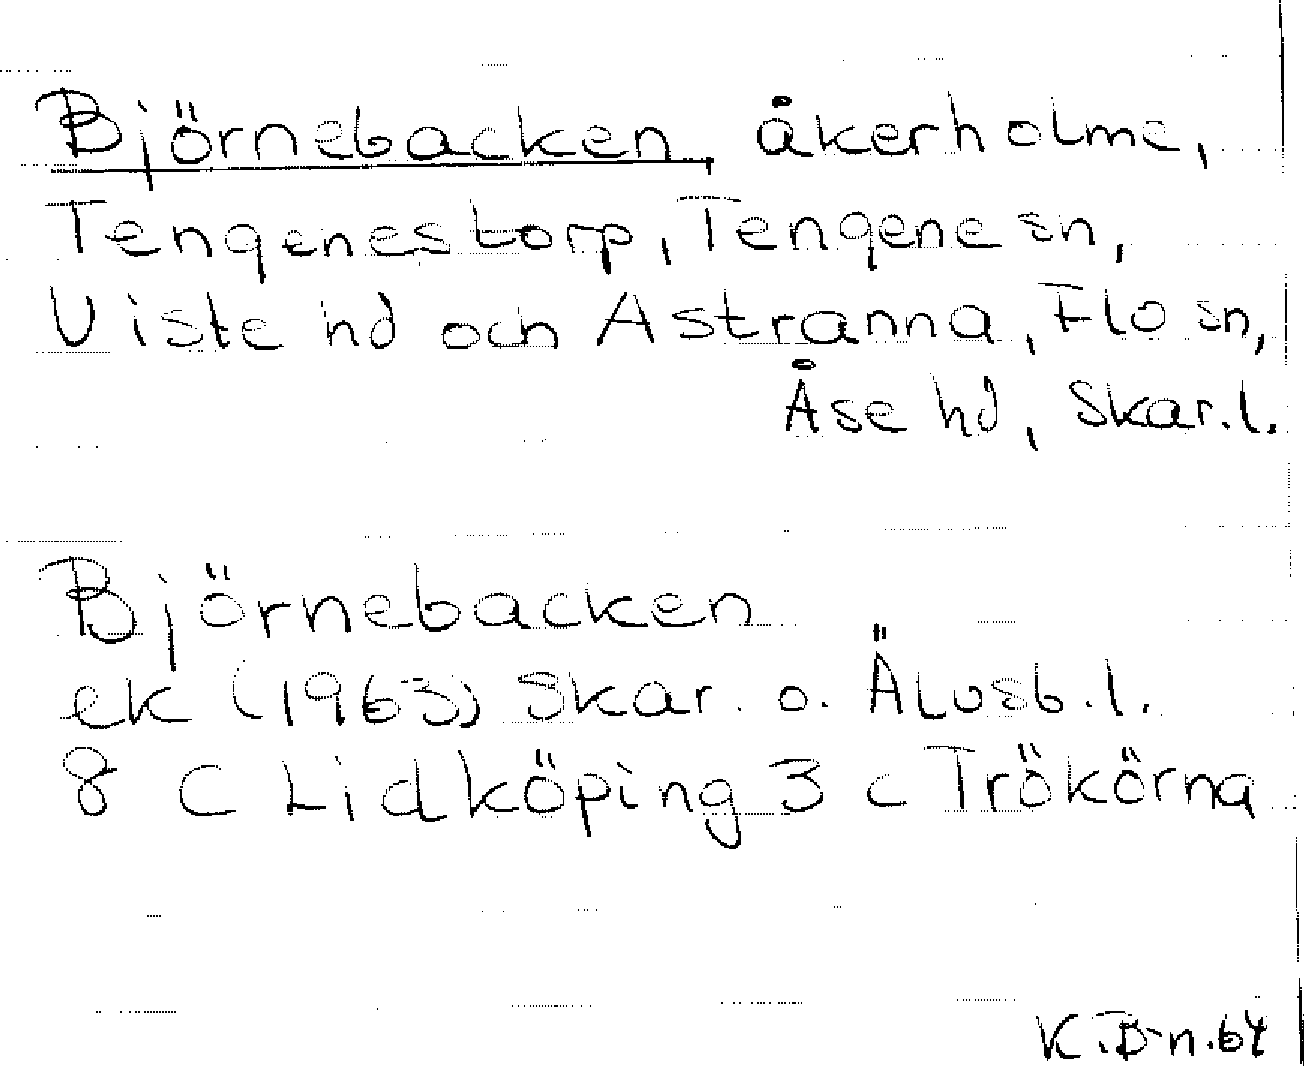 Björnebacken, åkerholme,
Tengenestorp, Tengene sn,
Viste hd och Astranna, Flo sn,
Åse hd, Skar.l.
Björnebacken
ek (1963) Skar. o. Älvsb.l.
8 C Lidköping 3 c Trökörna
K.B-n.64